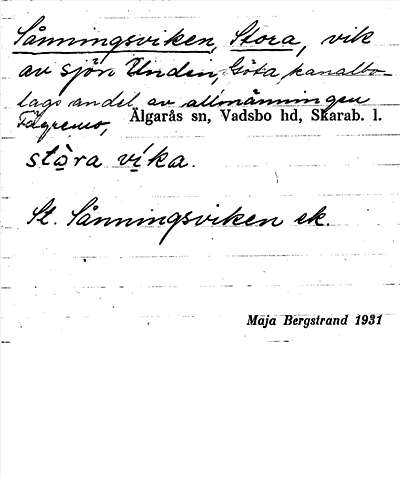 Sånningsviken, Stora, vik
av sjön Unden, Göta kanalbo-
lags andel av allmänningen
Fägremo,
Älgarås sn, Vadsbo hd, Skarab. l.
stòra víka.
St. Sånningsviken ek.
Maja Bergstrand 1931